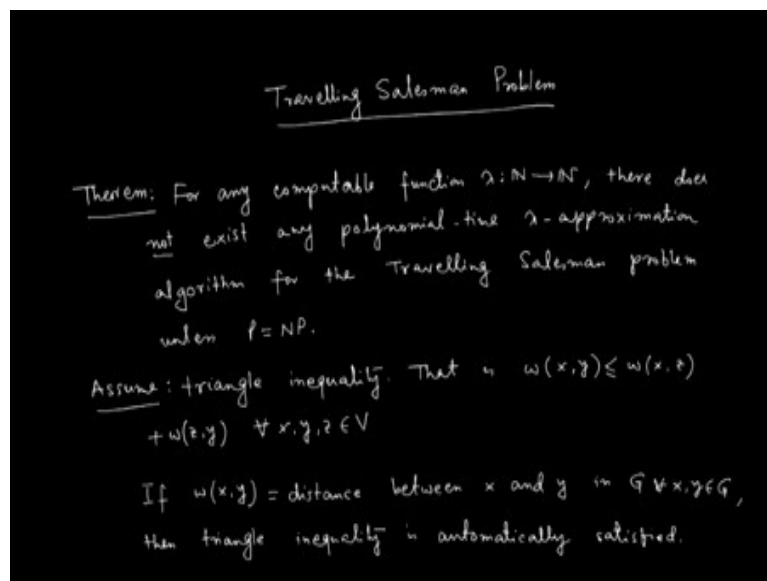 Travelling Salesman Problem
Theorem: For any computable function λ: ℕ → ℕ, there does
not exist any polynomial-time λ-approximation
algorithm for the Travelling Salesman problem
unless P = NP.
Assume: triangle inequality. That is w(x,y) ≤ w(x,z)
+ w(z,y) ∀ x,y,z ∈ V
If w(x,y) = distance between x and y in G ∀ x,y ∈ G,
then triangle inequality is automatically satisfied.